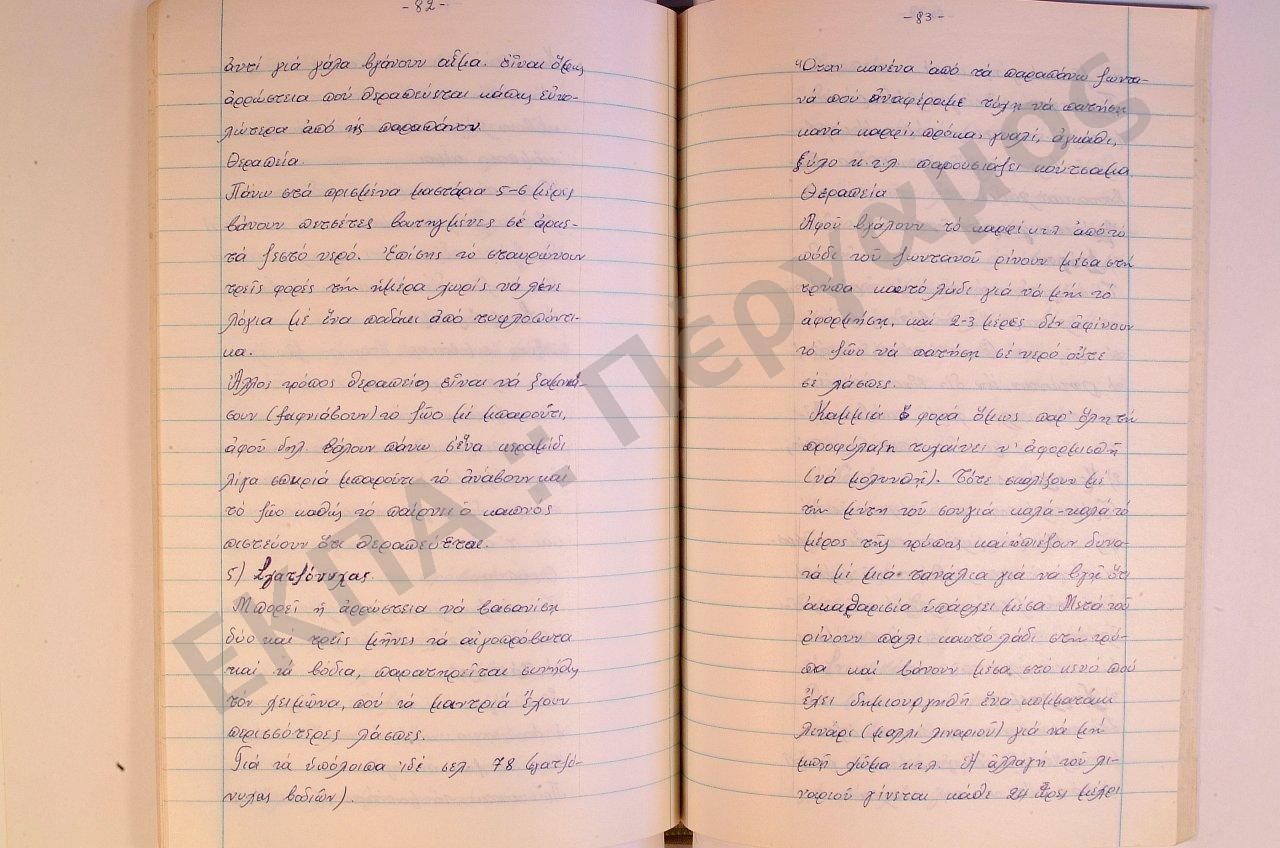 -82-
ἀντί γιά γάλα βγάνουν αἷμα. Εἶναι ὅμως
ἀρρώστεια πού θεραπεύεται κάπως εὐκο-
λώτερα ἀπό τίς παραπάνου.
Θεραπεία.
Πάνω στά πρισμένα μαστάρια 5-6 μέρες
βάνουν πετσέτες βουτηγμένες σέ ἀρκε-
τά ζεστό νερό. Ἐπίσης τό σταυρώνουν
τρεῖς φορές τήν ἡμέρα χωρίς νά λένε
λόγια μέ ἕνα ποδάκι ἀπό τυφλοπόντι-
κα.
Ἄλλος τρόπος θεραπείας εἶναι νά
σουν (ξαφνιάσουν) τό ζῶο μέ μπαρούτι,
ἀφοῦ δηλ. βάλουν πάνω σ' ἕνα κεραμίδι
λίγα σπειριά μπαρούτι τό ἀνάβουν καί
τό ζῶο καθώς τό παίρνει ὁ καπνός
πιστεύουν ὅτι θεραπεύεται.
5) Σγατζόνυχας.
Μπορεῖ ἡ ἀρρώστεια νά βασανίση
δύο καί τρεῖς μῆνες τά αἰγοπρόβατα
καί τά βόδια, παρατηρεῖται συνήθως
τόν χειμῶνα, πού τά μαντριά ἔχουν
περισσότερες λάσπες.
Γιά τά ὑπόλοιπα ἰδέ σελ. 78 (σγατζό-
νυχας βοδιῶν).
-83-
Ὅταν κανένα ἀπό τά παραπάνω ζωντα-
νά πού ἀναφέραμε τύχη νά πατήση
κανά καρφί, πρόκα, γυαλί, ἀγκάθι,
ξύλο κ.τ.λ. παρουσιάζει κούτσαμα.
Θεραπεία
Ἀφοῦ βγάλουν τό καρφί κτλ ἀπό τό
πόδι τοῦ ζωντανοῦ ρίνουν μέσα στή
τρύπα καυτό λάδι γιά νά μήν τό
ἀφορμήση, καί 2-3 μέρες δέν ἀφίνουν
τό ζῶο νά πατήση σέ νερό οὔτε
σέ λάσπες.
Καμμιά φορά ὅμως παρ' ὅλη τήν
προφύλαξη τυχαίνει ν' ἀφορμισθῆ
(νά μολυνθῆ). Τότε σκαλίζουν μέ
τήν μύτη τοῦ σουγιά καλά-καλά τό
μέρος τῆς τρύπας καί πιέζουν δυνα-
τά μέ μιά τανάλια γιά νά βγῆ ὅτι
ἀκαθαρσία ὑπάρχει μέσα. Μετά τοῦ
ρίνουν πάλι καυτό λάδι στήν τρύ-
πα καί βάνουν μέσα στό κενό πού
ἔχει δημιουργηθῆ ἕνα κομματάκι
λινάρι (μαλλί λιναριοῦ) γιά νά μή
μπῆ χῶμα κ.τ.λ. Ἡ ἀλλαγή τοῦ λι-
ναριοῦ γίνεται κάθε 24 ὧρες μέχρι
ΕΚΠΑ :: Πέργαμος